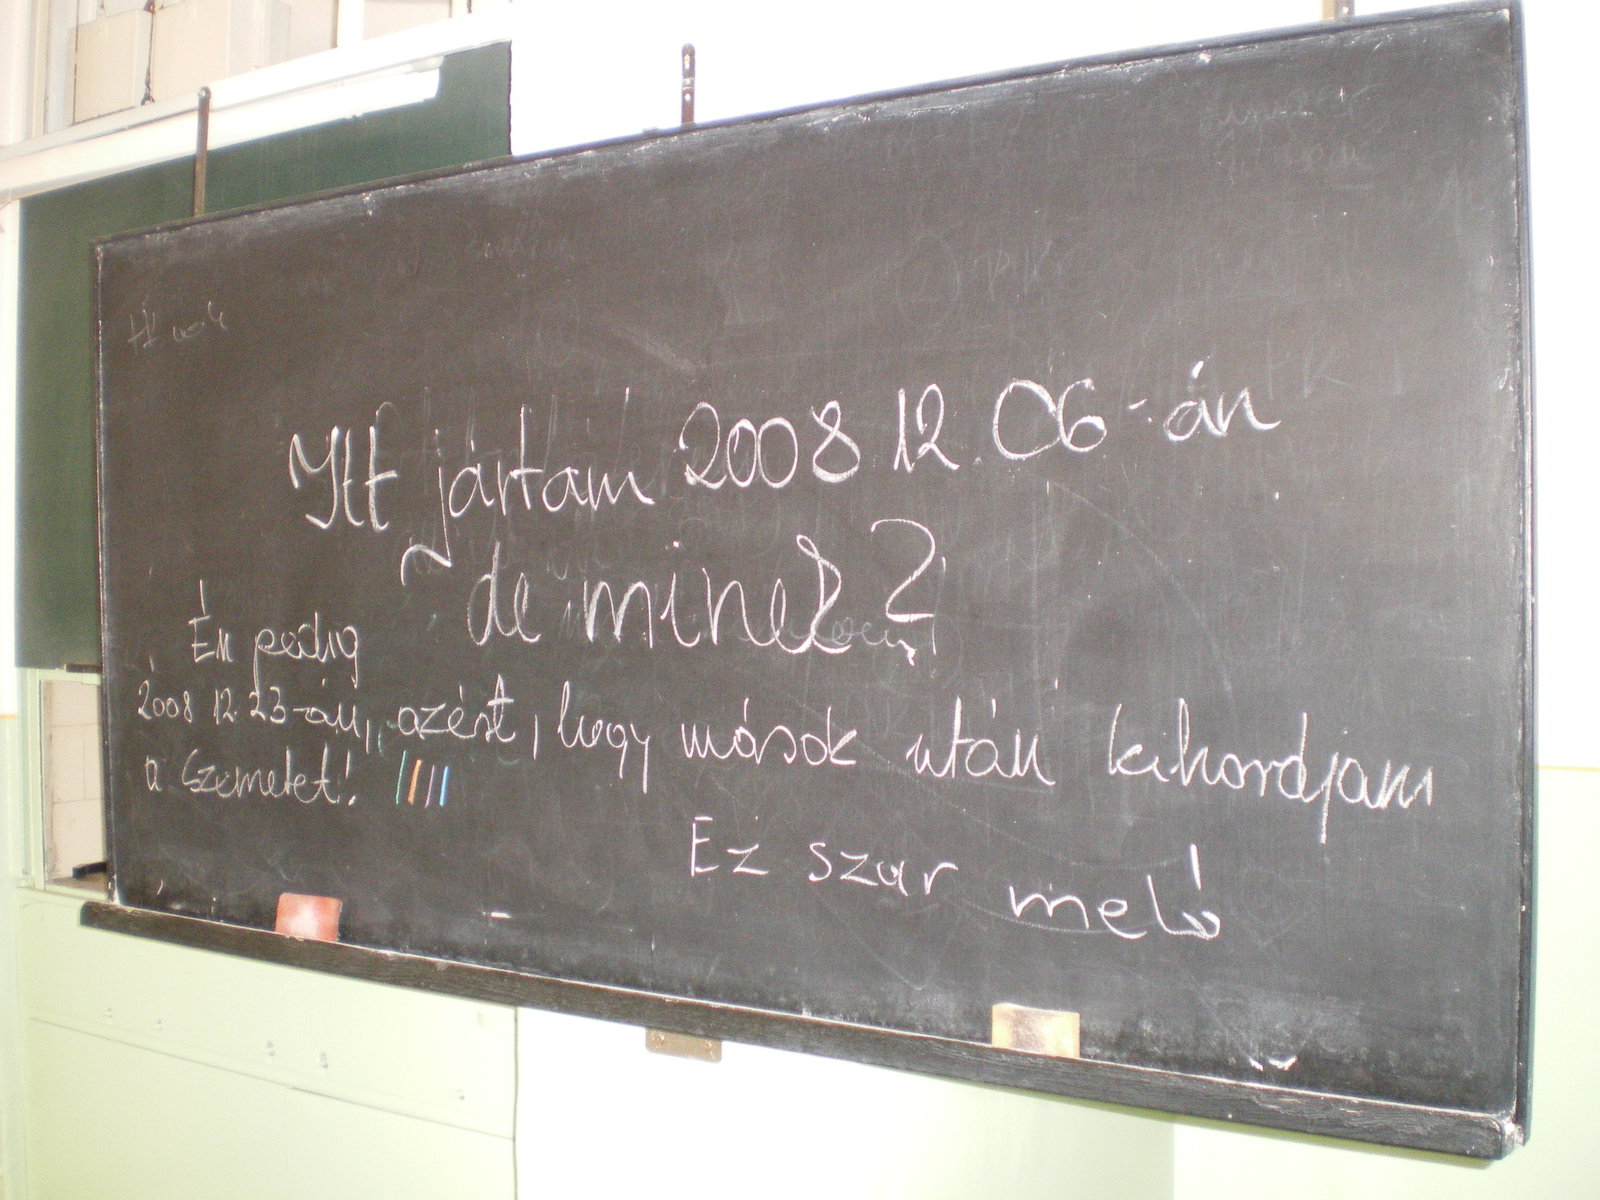 Itt jártam 2008 12. 06-án
de minek?
Én pedig
2008 12. 23-án, azért, hogy mások után kihordjam
a szemetet!
Ez szar meló